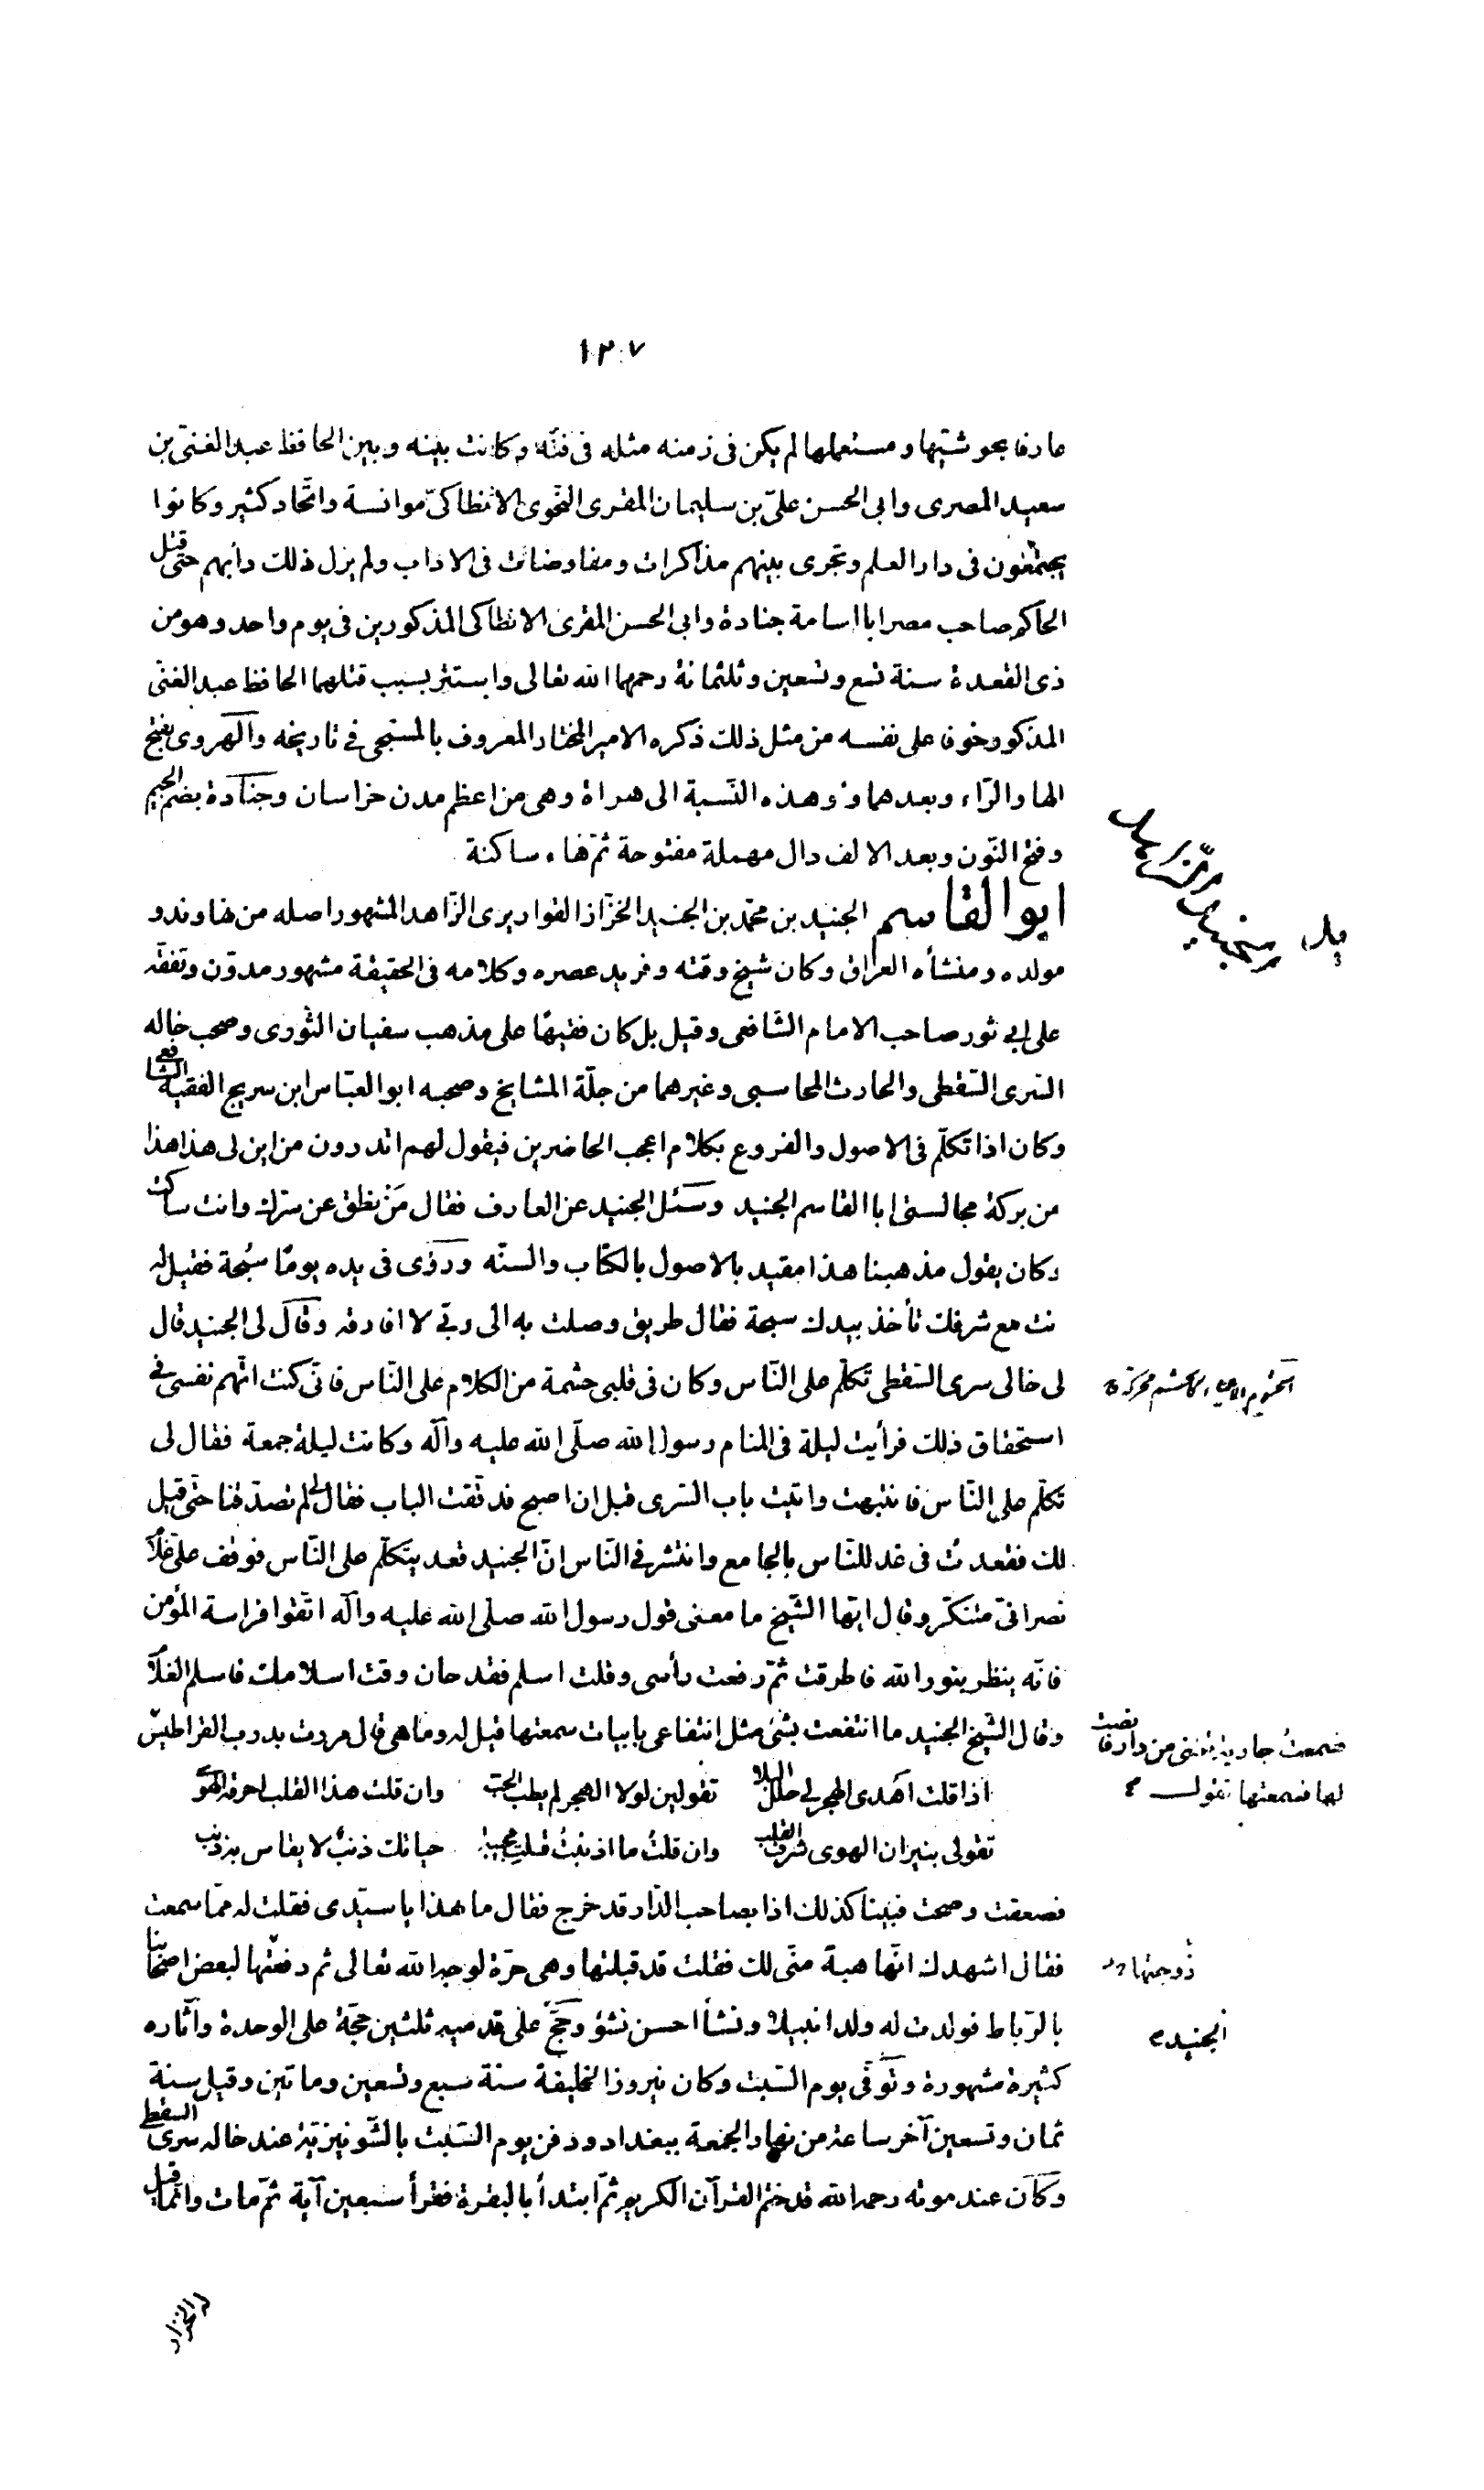 ١٢٠٧
عارفا بحوشيّها و مستعملها لم يكن فى زمنه مثله فى فنّه وكانت بينه وبين الحافظ عبد الغنىّ بن
سعيد المصرى وابى الحسن علىّ بن سليمان المقرى النّحوى الانطاكىّ موانسة واتّحاد كثير وكانوا
يجتمعون فى دار العلم وتجرى بينهم مذاكرات ومفاوضات فى الاداب ولم يزل ذلك دابهم حتى قتل
الحاكم صاحب مصر ابا اسامة جنادة وابى الحسن المقرى الانطاكى المذكورين فى يوم واحد وهو من
ذى القعدة سنة تسع وتسعين وثلثمائة رحمهما الله تعالى واستتر بسبب قتلهما الحافظ عبد الغنّى
المذكور خوفا على نفسه من مثل ذلك ذكره الامير المختار المعروف بالمسبّحى فى تاريخه والهروى بفتح
الها والرّاء وبعدها و وهذه النّسبة الى هراة وهى من اعظم مدن خراسان وجنادة بضم الجيم
وفتح النّون وبعد الالف دال مهملة مفتوحة ثمّ هاء ساكنة
ابو القاسم الجنيد بن محمّد بن الجنيد الخزّاز القواريرى الزّاهد المشهور اصله من نهاوند و
مولده ومنشأه العراق وكان شيخ وقته وفريد عصره وكلامه فى الحقيقة مشهور مدوّن وتفقّه
على ابى ثور صاحب الامام الشّافعى وقيل بل كان فقيهًا على مذهب سفيان الثّورى وصحب خاله
السّرى السّقطى والحارث المحاسبى وغيرهما من جلّة المشايخ وصحبه ابو العبّاس ابن سريج الفقيه الشافعى
وكان اذا تكلّم فى الاصول والفروع بكلام اعجب الحاضرين فيقول لهم اتدرون من اين لى هذا هذا
من بركة مجالستى ابا القاسم الجنيد وسئل الجنيد عن العارف فقال مَنْ نطق عن سرّك وانت ساكت
وكان يقول مذهبنا هذا مقيد بالاصول بالكتاب والسنّه ورؤى فى يده يومًا سُبحة فقيل له
نت مع شرفك تأخذ بيدك سبحة فقال طريق وصلت به الى ربّى لا افارقه وقال لى الجنيد قال
لى خالى سرى السّقطى تكلّم على النّاس وكان فى قلبى حشمة من الكلام على النّاس فانّى كنت اتّهم نفسى فى
استحقاق ذلك فرأيت ليلة فى المنام رسول الله صلّى الله عليه وآله وكانت ليلة جمعة فقال لى
تكلّم على النّاس فانتبهت واتيت باب السّرى قبل ان اصبح فدققت الباب فقال لى لم تصدّقنا حتّى قيل
لك فقعدتُ فى غد للنّاس بالجامع وانتشر فى النّاس انّ الجنيد قعد يتكلّم على النّاس فوقف علىّ غلامٌ
نصرانىّ متنكّر وقال ايّها الشّيخ ما معنى قول رسول الله صلى الله عليه وآله اتّقوا فراسة المؤمن
فانّه ينظر بنور الله فاطرقت ثمّ رفعت رأسى وقلت اسلم فقد حان وقت اسلامك فاسلم الغلام
وقال الشّيخ الجنيد ما انتفعت بشئ مثل انتفاعى بابيات سمعتها قيل له وما هى قال مررت بدرب القراطيس
فسمعتُ جارية تغنى من دار فانصت
لها فسمعتها تقول
اذا قلت اَهْدى الهجر لى حلل البلا تقولين لولا الهجر لم يطب الحب وان قلت هذا القلب احرقه الهوى
تقولى بنيران الهوى شرف القلب وان قلتُ ما اذنبتُ قلتِ مجيبة حياتك ذنبٌ لا يقاس به ذنب
فصعقت وصحت فبينا كذلك اذا بصاحب الدّار قد خرج فقال ما هذا يا سيّدى فقلت له ممّا سمعت
فقال اشهدك انّها هبة منّى لك فقلت قد قبلتها وهى حرّة لوجه الله تعالى ثم دفعتها لبعض اصحابنا
زوجتها
بالرّباط فولدت له ولدا نبيلا ونشأ احسن نشؤ وحجّ على قدميه ثلثين حجّة على الوحدة وآثاره
الجنيد
كثيرة مشهورة وتوفّى يوم السّبت وكان نيروز الخليفة سنة سبع وتسعين ومأتين وقيل سنة
ثمان وتسعين آخر ساعة من نهار الجمعة ببغداد ودفن يوم السّبت بالشّونيزيّة عند خاله سرى السقطى
وكان عند موته رحمه الله قد ختم القرآن الكريم ثمّ ابتدأ بالبقرة فقرأ سبعين آية ثمّ مات وانّما قيل
له الخزاز